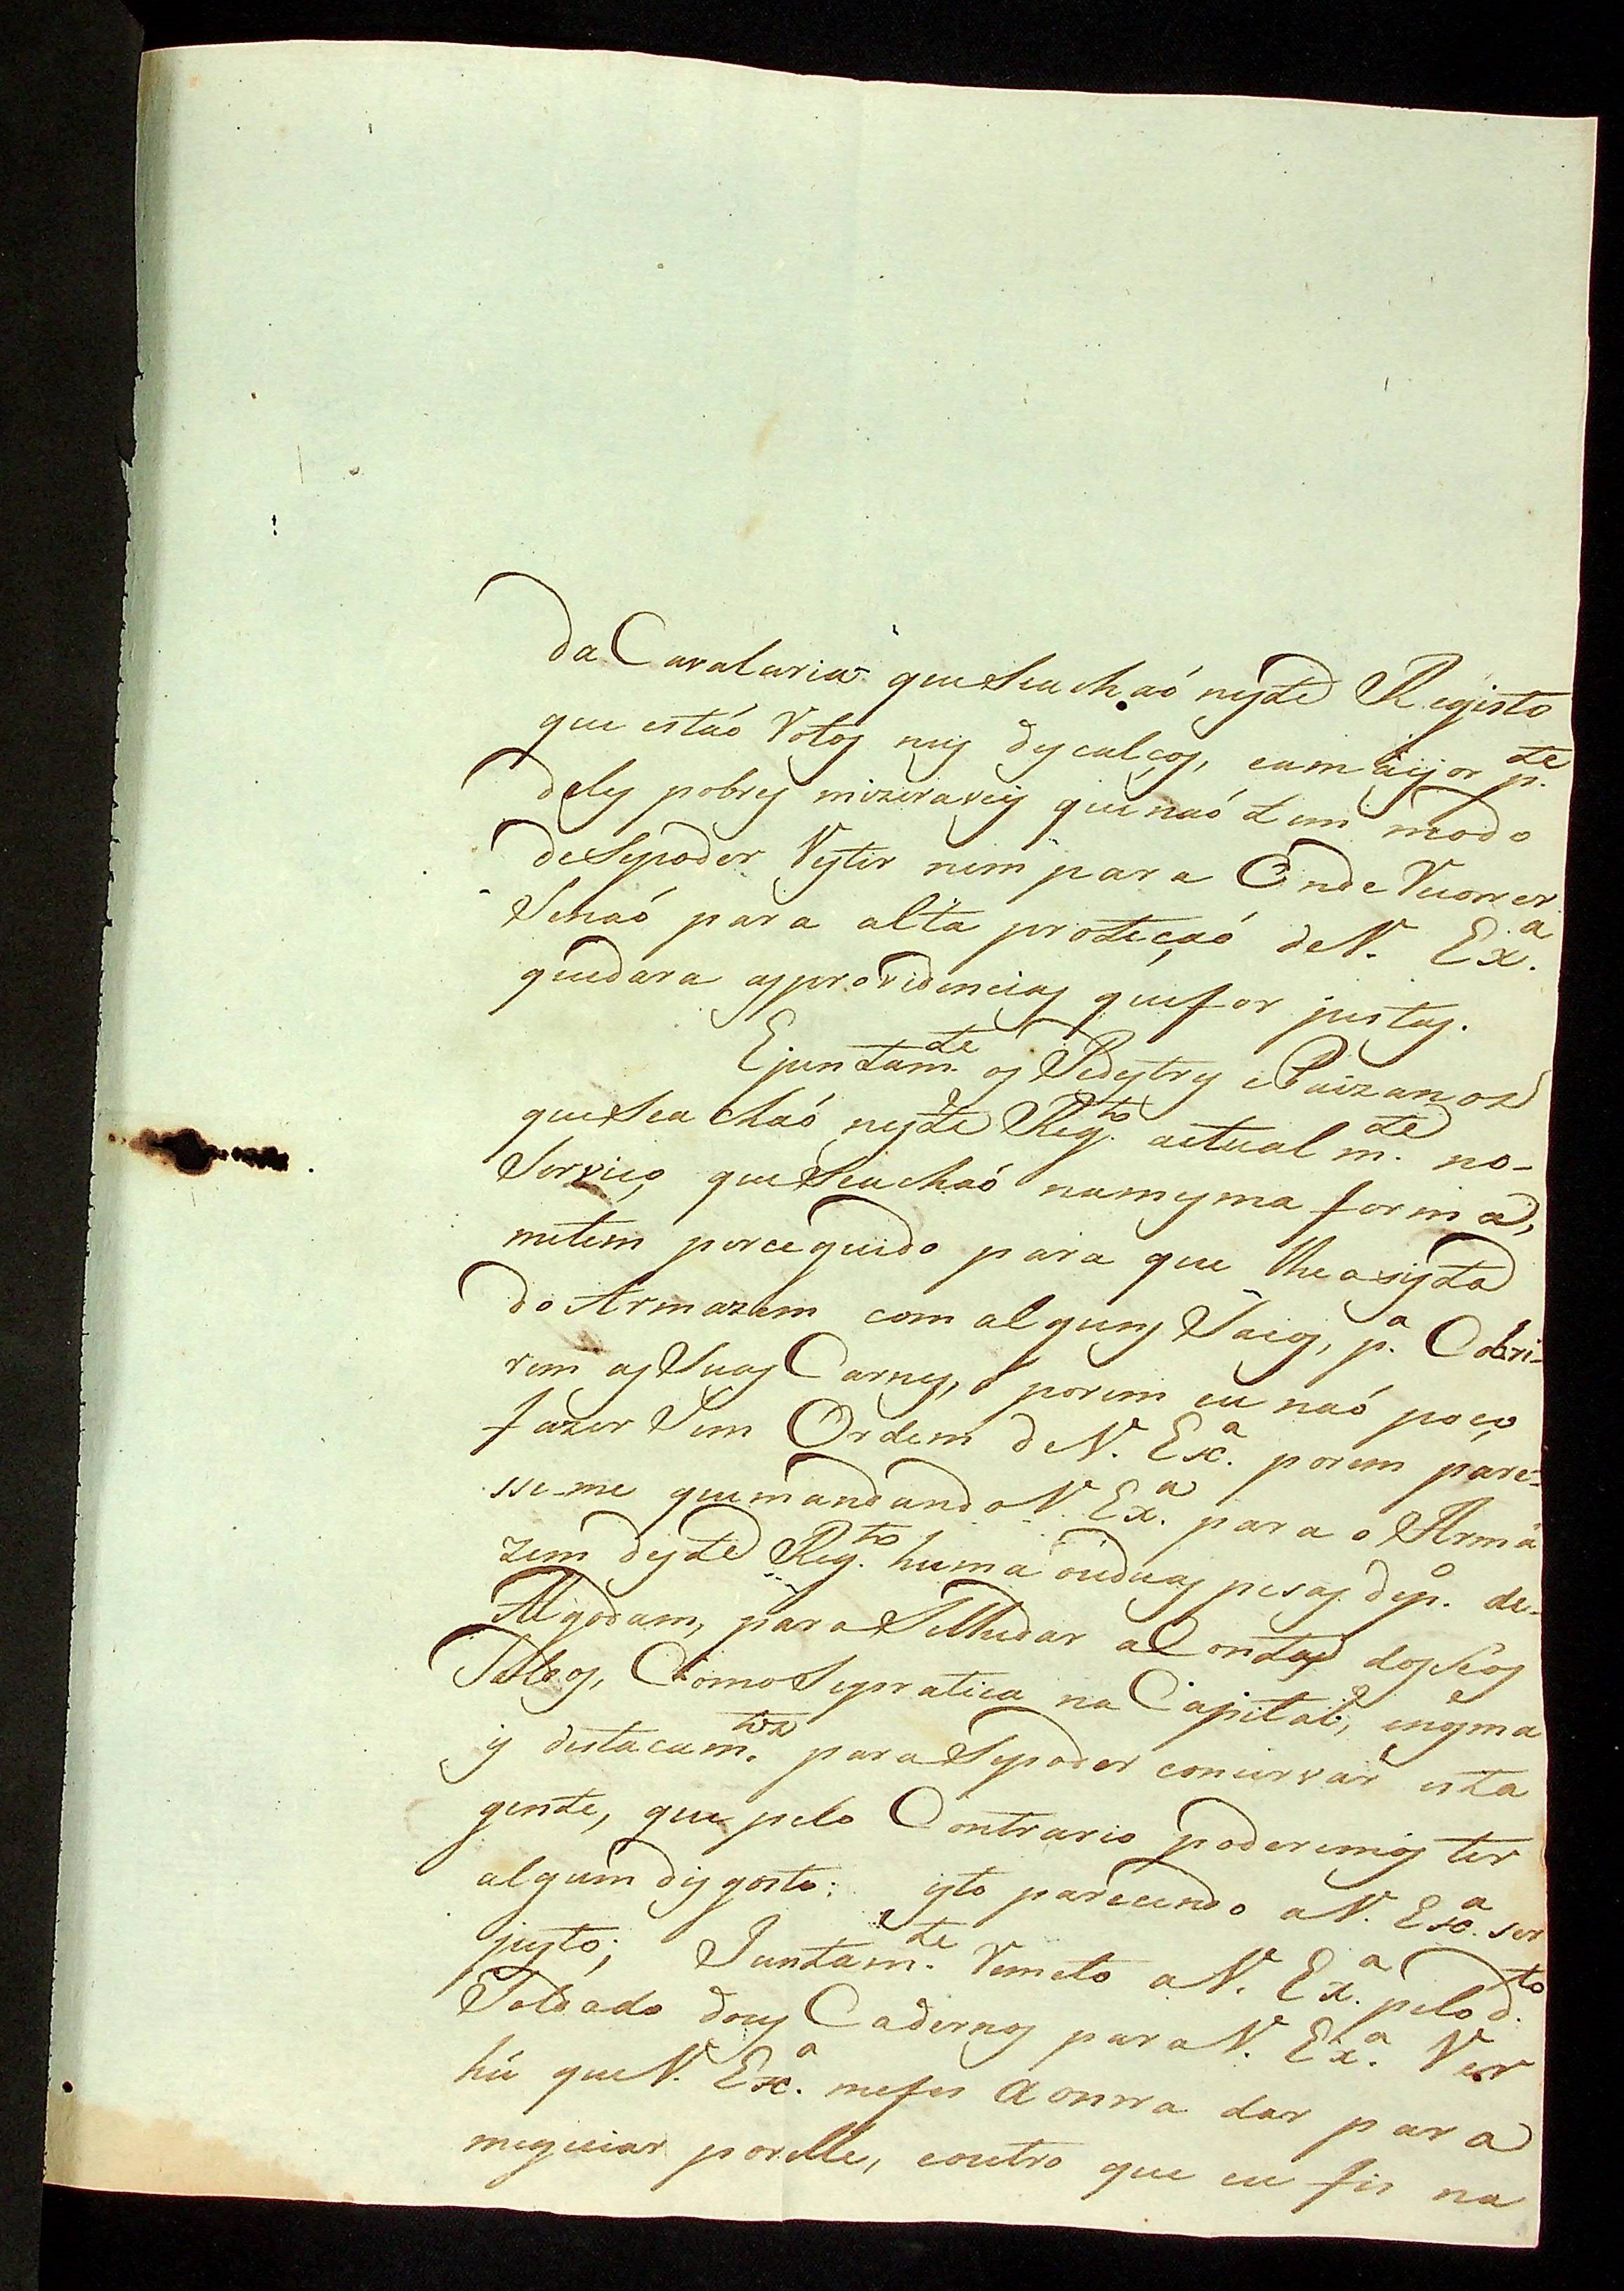 da Cavalaria que Se achaó neste Registo
que estaó Rotos nus descalços, eamaijor p.te
deles pobres mizeraveis que naó tem modo
de Sepoder Vestir nem para Onde Recorrer
Senaó para alta proteçaó de V. Ex.a
quedara asprovidencias quefor justas.
Ejuntam.te os Pedestres ePaizanos
queSea chaó neste Reg.to actualm.te no-
Serviço que Seachaó namesma forma,
metem perceguido para que lhe asista
do Armazem com alguns Sacos, p.a Cobri-
rem as Suas Carnes, porem eu naó poço
fazer Sem Ordem de V. Ex.a porem pare-
sse-me quemandando V. Ex.a para o Armá
zem deste Reg.to huma ouduas pesas dep.o de-
Algodam, para Selhedar aConta dosSeos
Soldos, Como Sepratica na Capital, enosma
is destacam.tos para Sepoder concervar esta
gente, que pelo Contrario poderemos ter
algum disgosto: isto parecendo aV. Ex.a ser
justo; Juntam.te Remeto aV. Ex.a pelod.to
Soldado dous Cadernos para V. Ex.a Ver
hú que V. Ex.a mefes aonrra dar para
meguiar porelle, eoutro que eu fis na